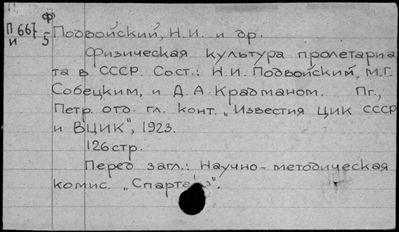 Ф
П 667 5
И
Подвойский, Н.И. и др.
Физическая культура пролетариа
та в СССР. Сост.: Н.И. Подвойским, М.Г.
Собецким, и Д.А. Крадманом. Пг.,
Петр. отд. гл. конт. "Известия ЦИК СССР
и ВЦИК", 1923.
126 стр.
Перед загл.: Научно-методическая
комис. "Спартака".